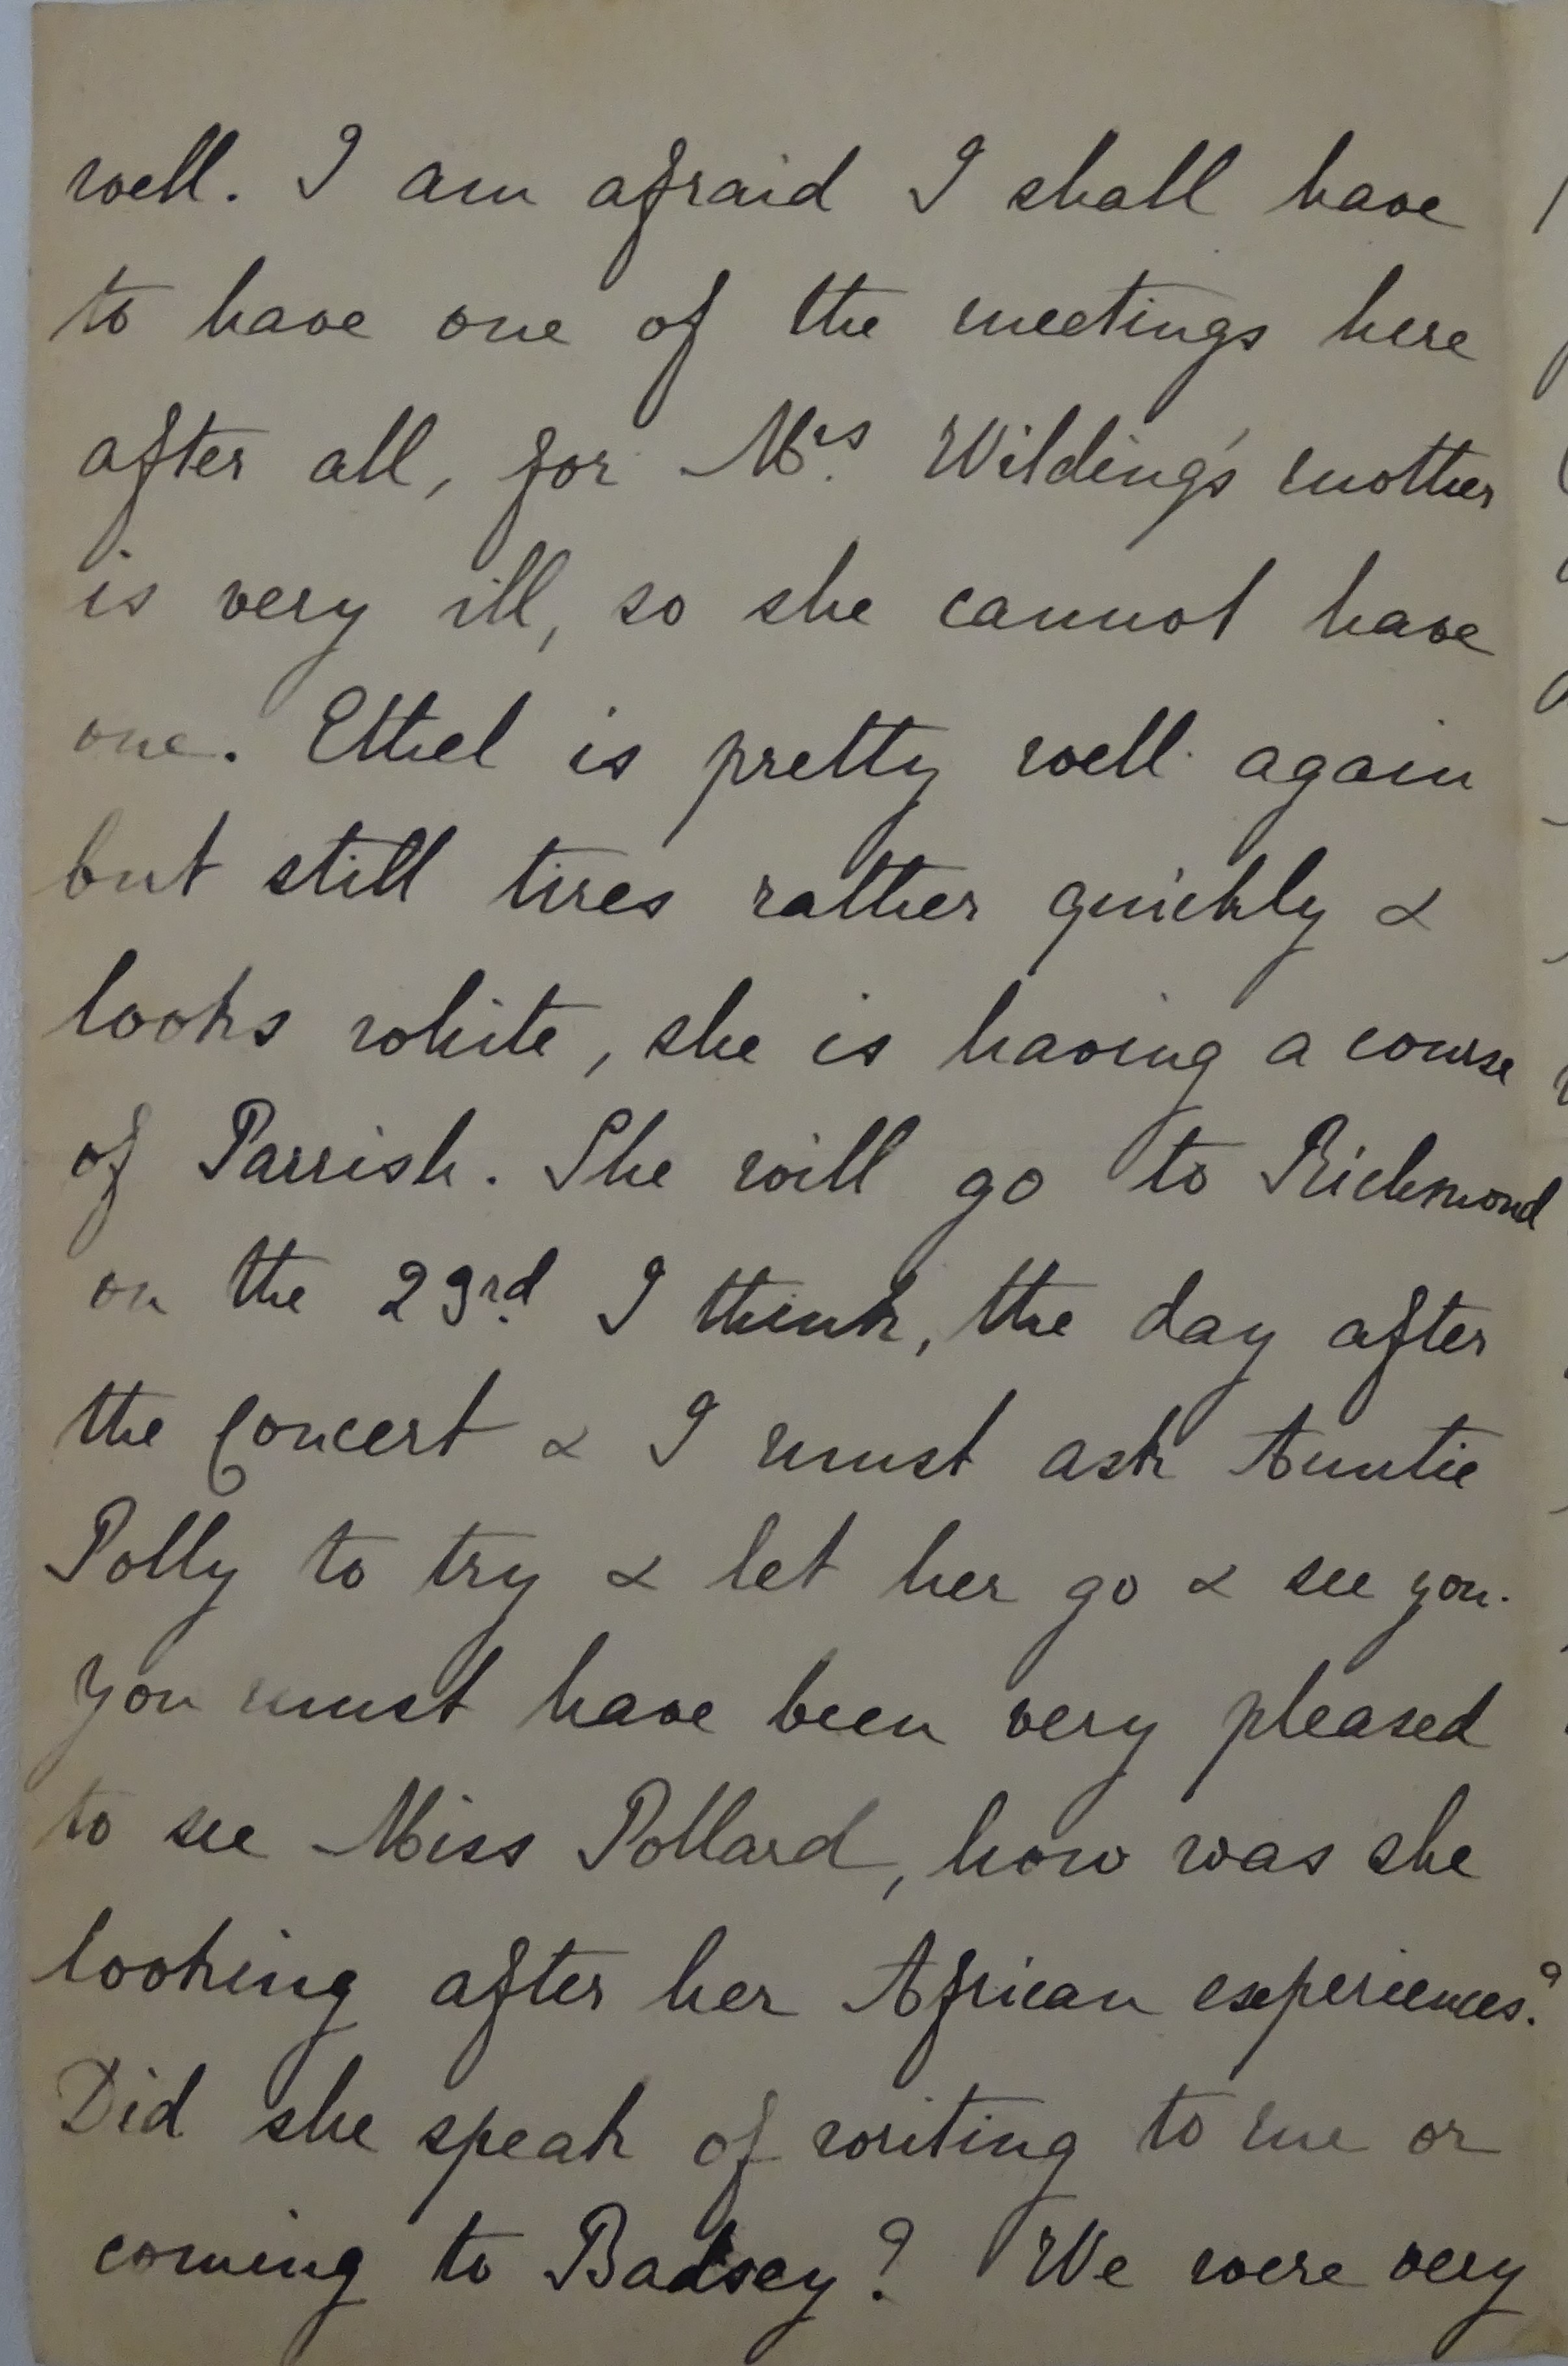 well. I am afraid I shall have
to have one of the meetings here
after all, for Mrs. Wilding's mother
is very ill, so she cannot have
one. Ethel is pretty well again
but still tires rather quickly &
looks white, she is having a course
of Parrish. She will go to Richmond
on the 23rd. I think, the day after
the Concert & I must ask Auntie
Polly to try & let her go & see you.
You must have been very pleased
to see Miss Pollard, how was she
looking after her African experiences?
Did she speak of writing to me or
coming to Badsey? We were very